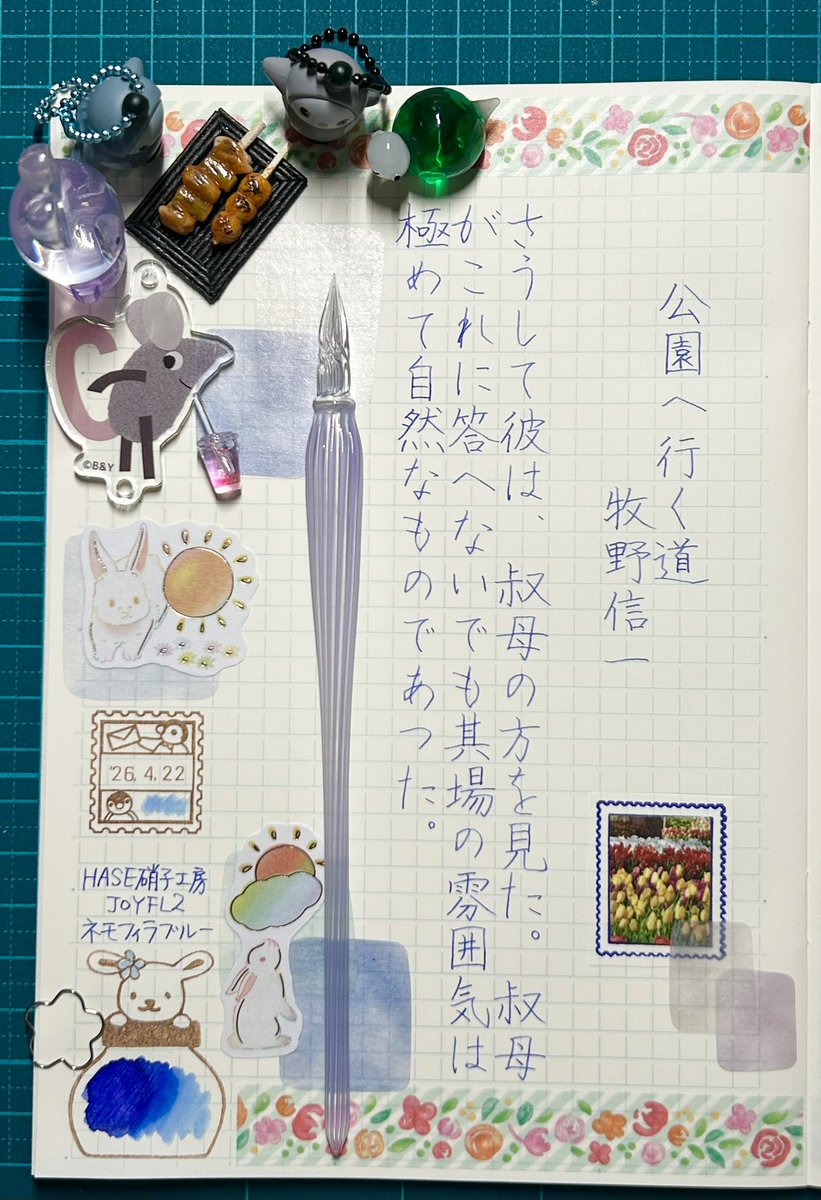 公園へ行く道
牧野信一
さうして彼は、叔母の方を見た。叔母
がこれに答へないでも其場の雰囲気は
極めて自然なものであつた。
C
©B&Y
'26.4.22
HASE硝子工房
JOYFL2
ネモフィラブルー